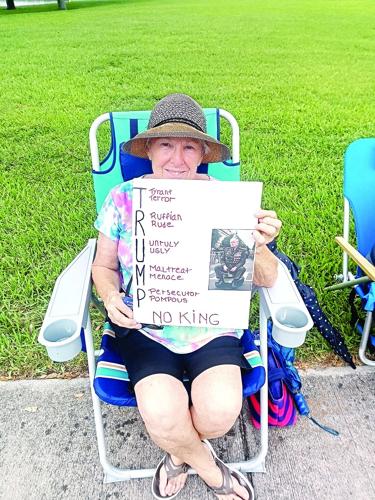 TRUMP
Tyrant
Terror
Ruffian
Rude
Unruly
Ugly
Maltreat
Menace
Persecutor
Pompous
NO KING